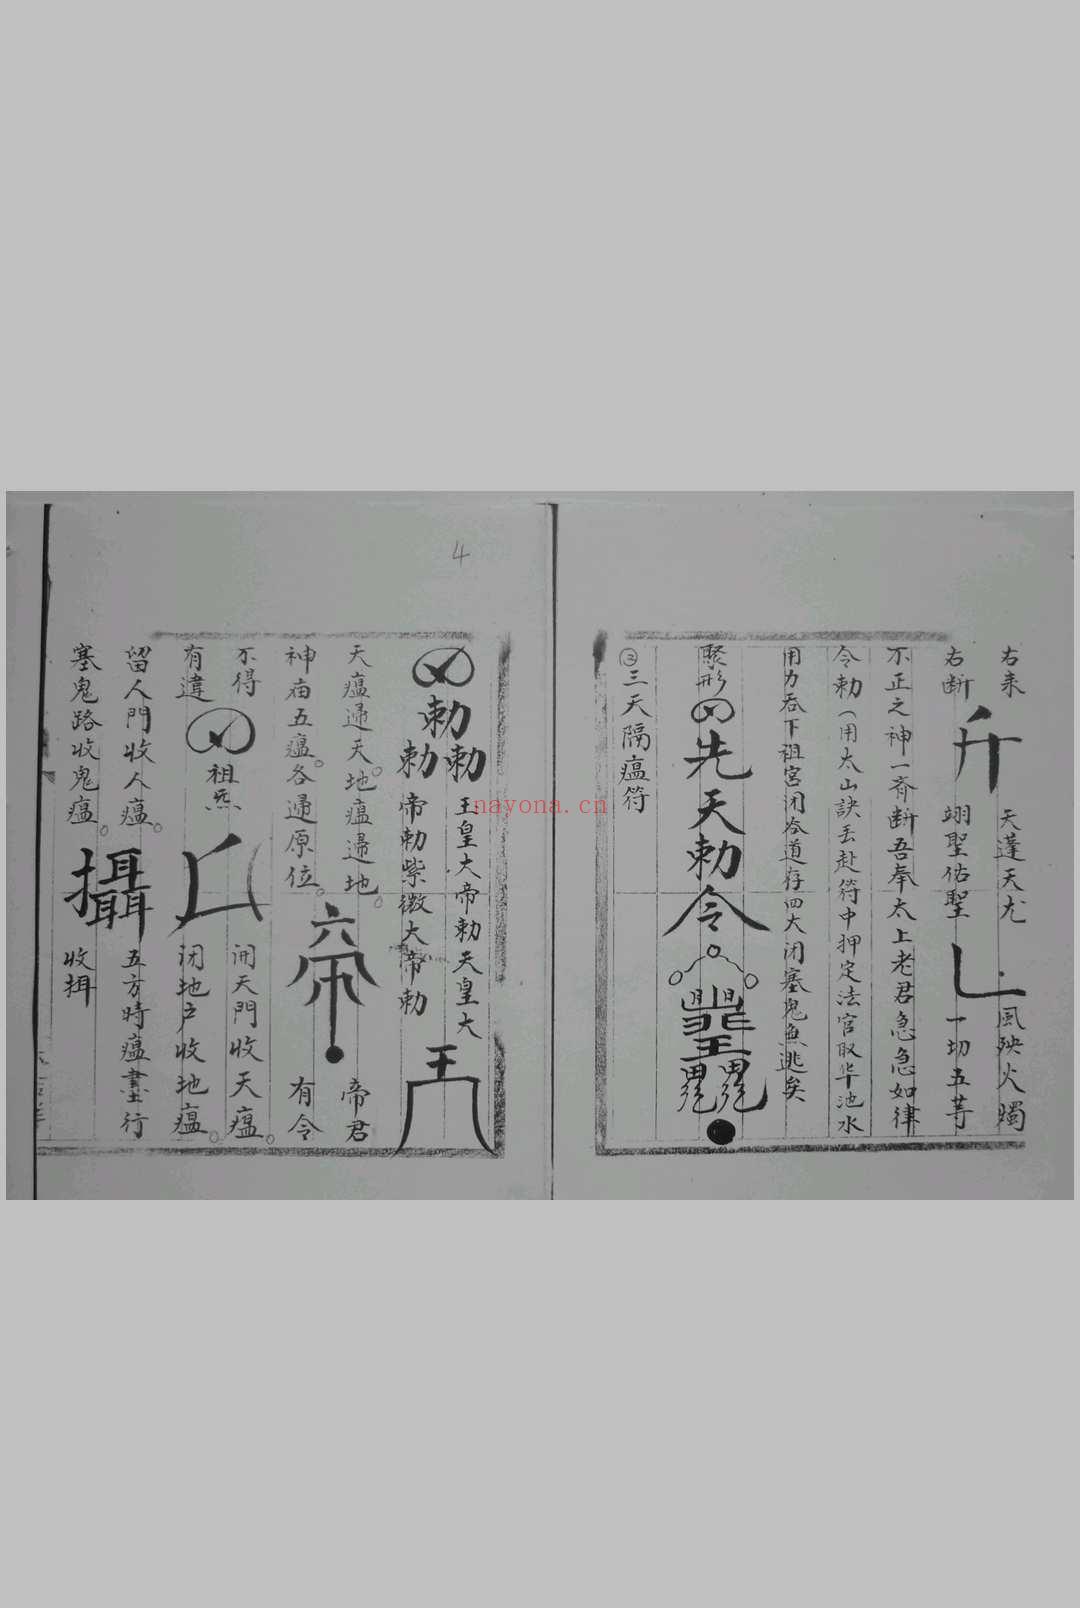 右来
天蓬天尤
風殃火燭
右断
翊聖佑聖
一切五䓁
不正之神一齐断吾奉太上老君急急如律
令勅（用太山訣丢赴符中押定法官取华池水
用力吞下祖宫闭谷道存四大闭塞鬼無逃矣
聚形
先天勅令
③三天隔瘟符
4
勅
勅勅
玉皇大帝勅天皇大
帝勅紫微大帝勅
天瘟逿天。地瘟逿地。
帝君
神庙五瘟。各逿原位。
有令
不得
有違
祖炁
開天門收天瘟。
闭地户收地瘟。
留人門收人瘟。
五方時瘟盡行
塞鬼路收鬼瘟。
攝
收揖
nayona.cn